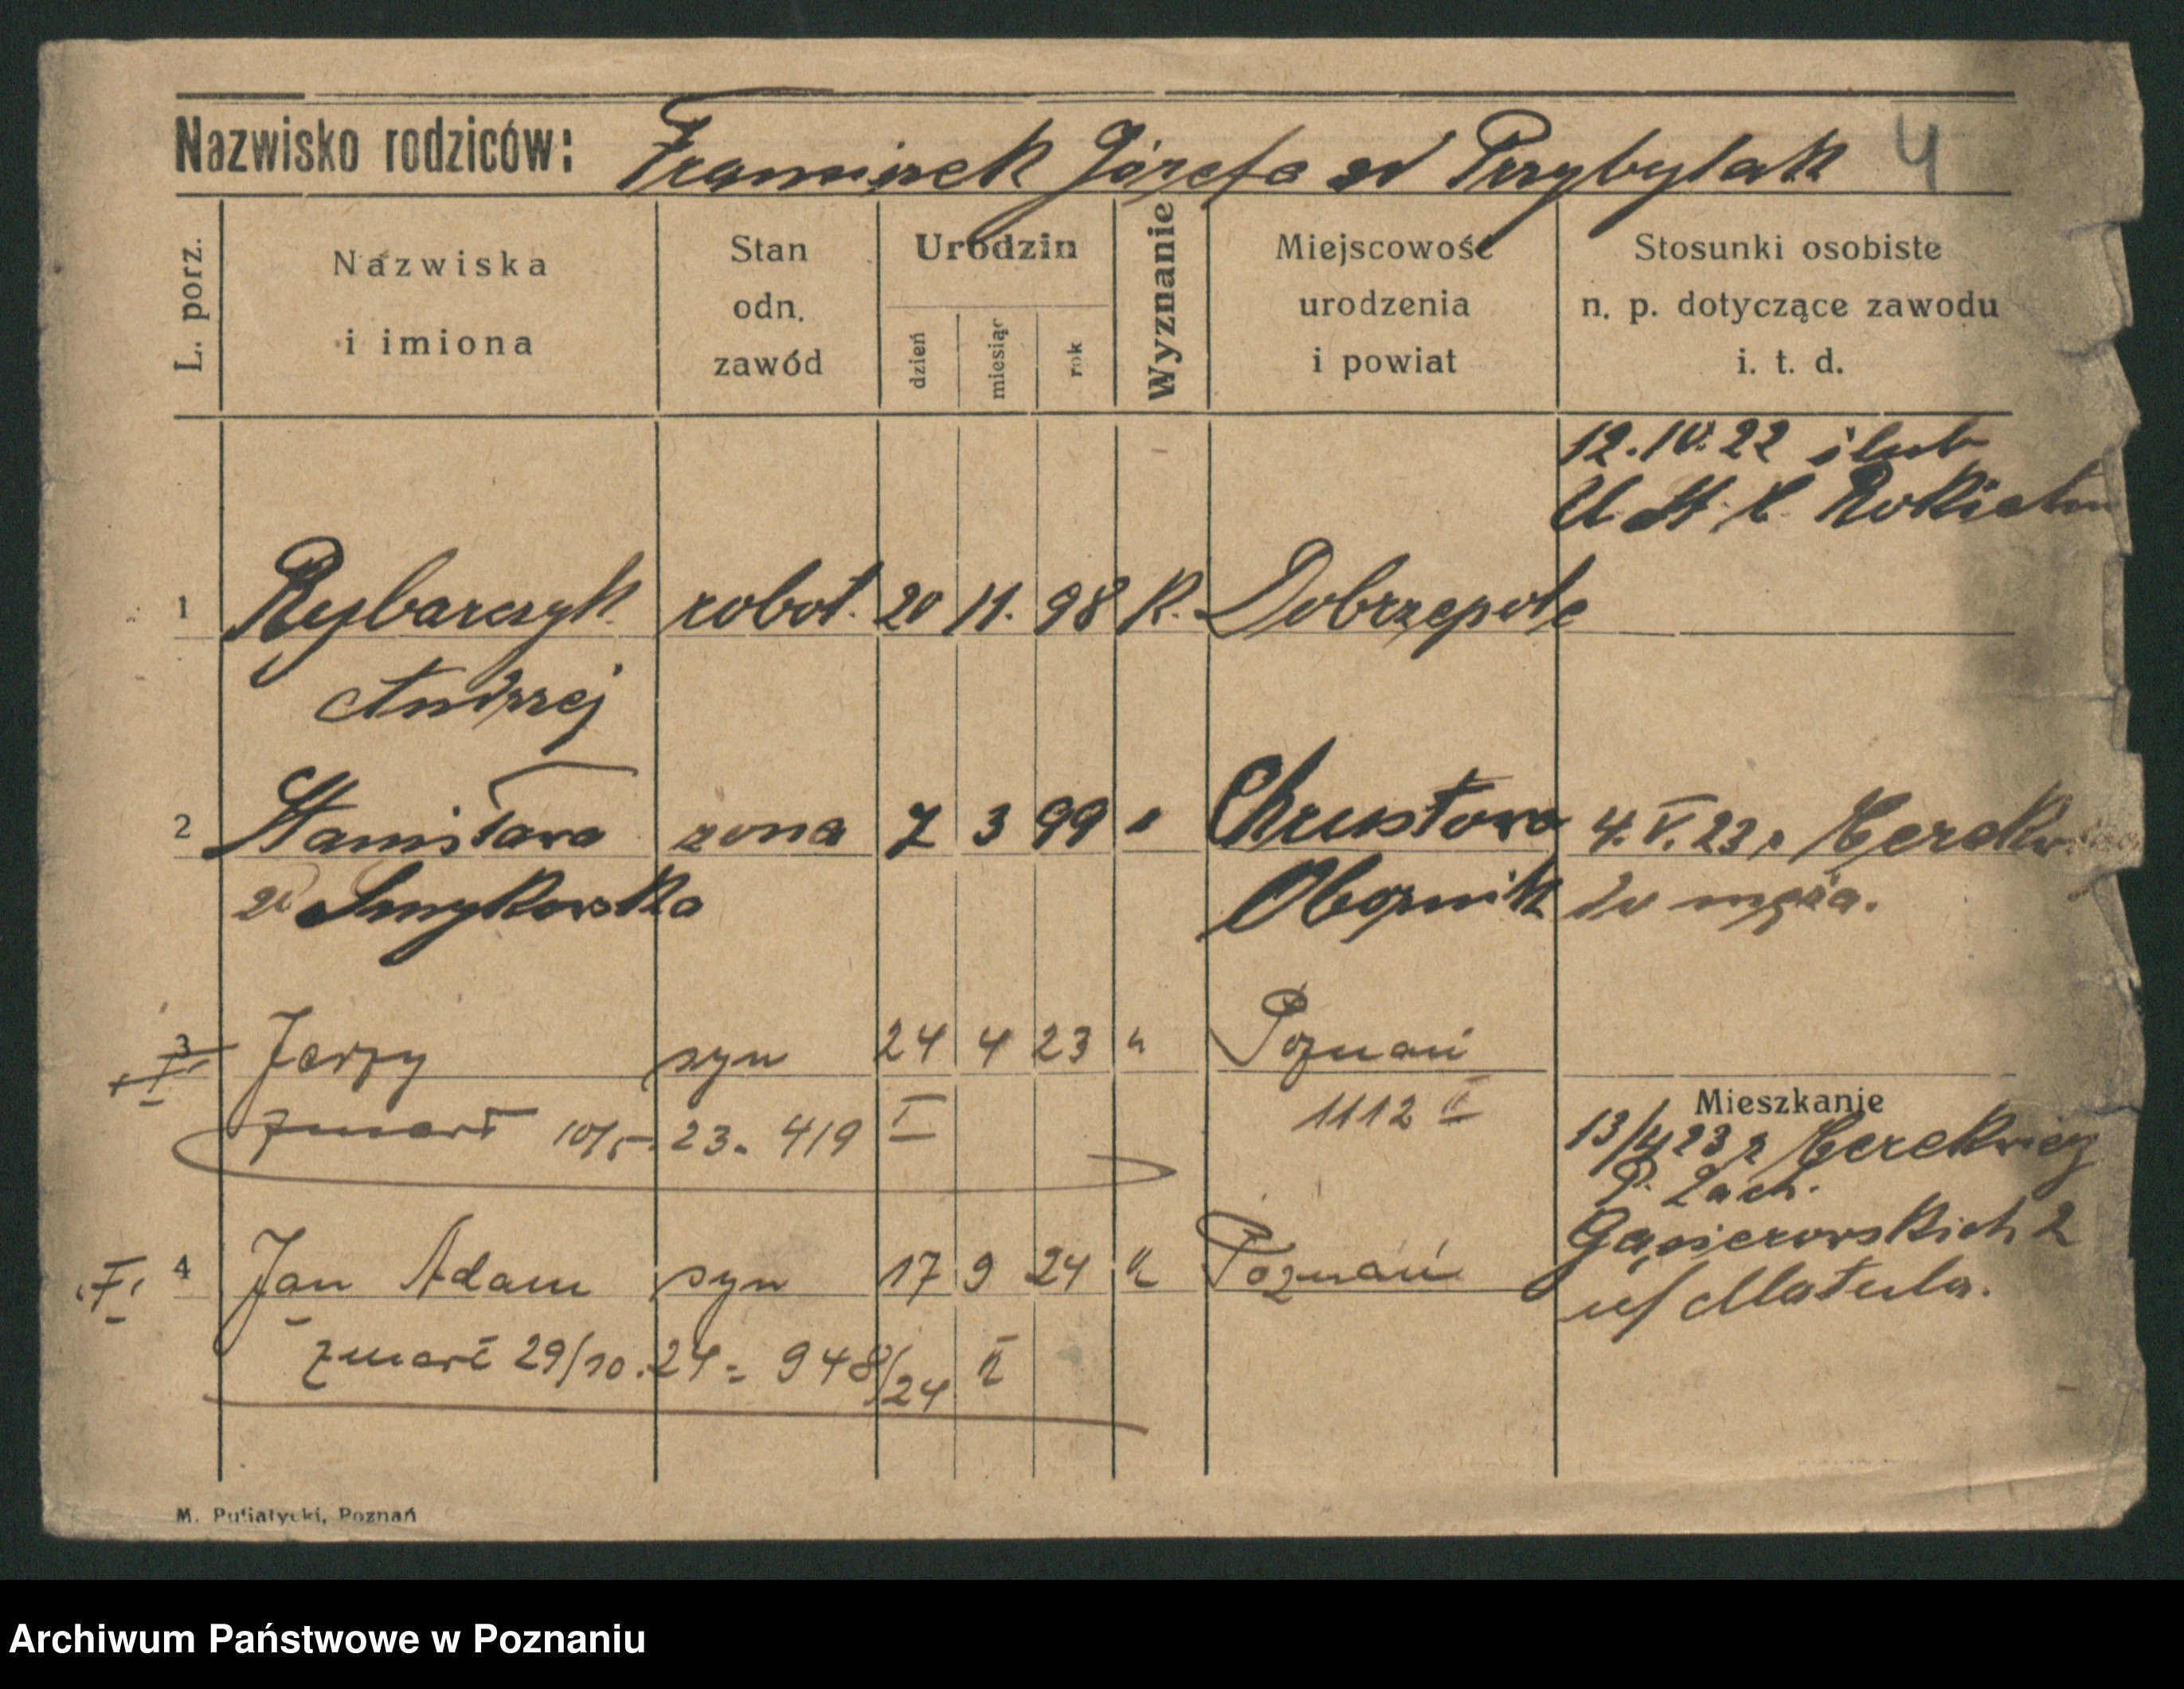 Nazwisko rodziców: Franciszek Józefa zd Przybylak 4
L. porz.
Nazwiska i imiona
Stan odn. zawód
Urodzin
dzień miesiąc rok
Wyznanie
Miejscowość urodzenia i powiat
Stosunki osobiste n. p. dotyczące zawodu i. t. d.
12.IV.22 ślub
U. St. C. Rokietn
1 Rybarczyk robot. 20 11. 98 K. Dobrzepole
Andrzej
2 Stanisława zona 7 3 99 " Chrustowo 4.V.23 z Cerekwica
zd Smykowska Obornik do męża.
3 Jerzy syn 24 4 23 " Poznań
zmarł 10/5. 23. 419 I 1112 II
Mieszkanie
13/4 23 z Cerekwicy
P. Zach.
Gąsiorowskich 2
u/ Matula.
4 Jan Adam syn 17 9 24 k Poznań
zmarł 29/10.24 = 948/24 II
M. Putiatycki, Poznań
Archiwum Państwowe w Poznaniu